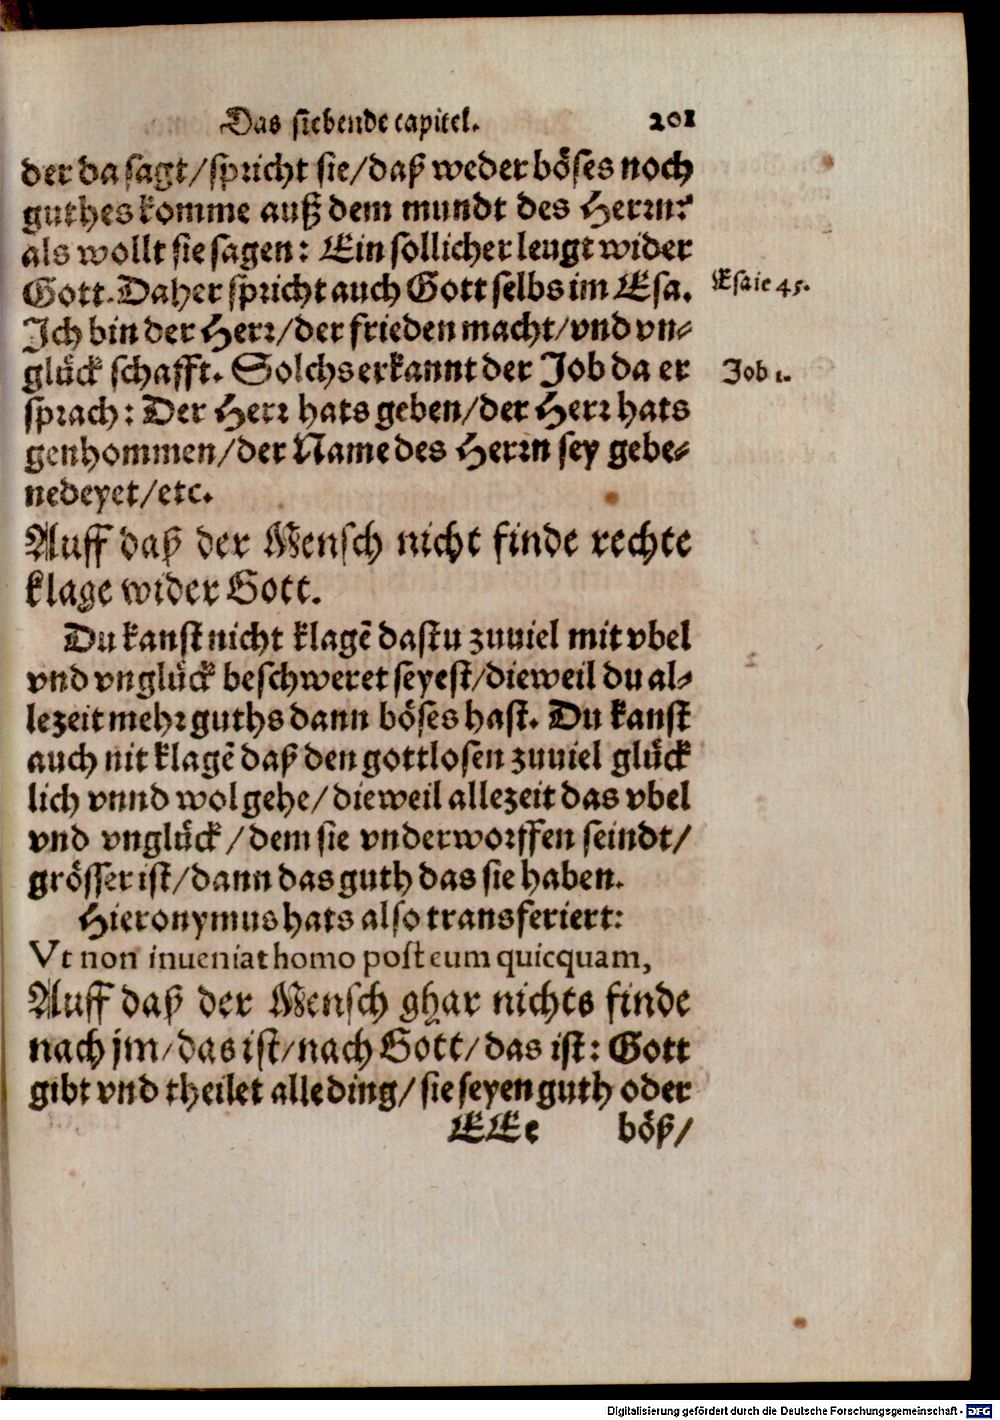 Das siebende capitel. 201
der da sagt/spricht sie/daß weder böses noch
guthes komme auß dem mundt des Herrn?
als wollt sie sagen: Ein sollicher leugt wider
Gott. Daher spricht auch Gott selbs im Esa.
Esaie 45.
Ich bin der Herr/der frieden macht/vnd vn-
glück schafft. Solchs erkannt der Job da er
Job 1.
sprach: Der Herr hats geben/der Herr hats
genhommen/der Name des Herrn sey gebe-
nedeyet/etc.
Auff daß der Mensch nicht finde rechte
klage wider Gott.
Du kanst nicht klagē dastu zuuiel mit vbel
vnd vnglück beschweret seyest/dieweil du al-
lezeit mehr guths dann böses hast. Du kanst
auch nit klagē daß den gottlosen zuuiel glück
lich vnnd wol gehe/dieweil allezeit das vbel
vnd vnglück/dem sie vnderworffen seindt/
grösser ist/dann das guth das sie haben.
Hieronymus hats also transferiert:
Vt non inueniat homo post eum quicquam,
Auff daß der Mensch ghar nichts finde
nach jm/das ist/nach Gott/das ist: Gott
gibt vnd theilet alle ding/sie seyen guth oder
EEe böß/
Digitalisierung gefördert durch die Deutsche Forschungsgemeinschaft - DFG